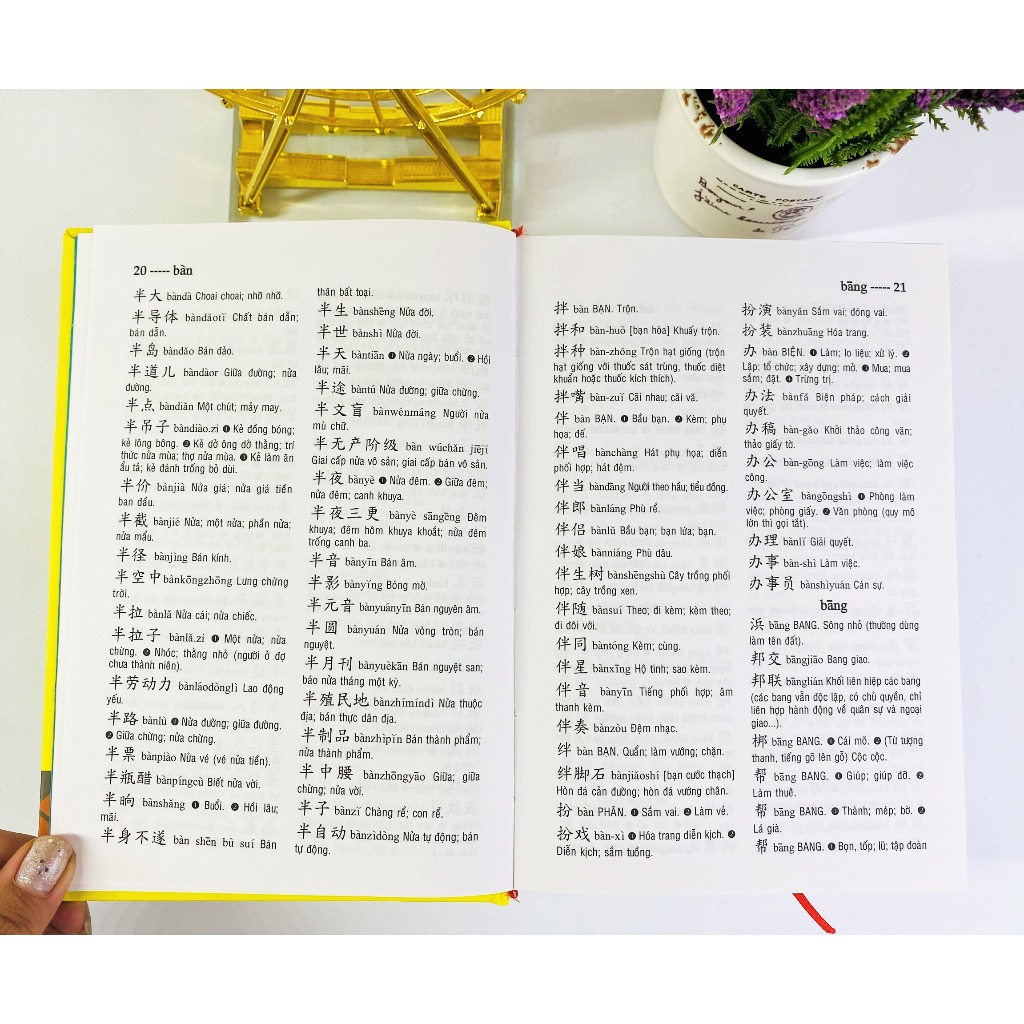 CARTE POSTALE
20 ----- bàn
半大 bàndà Choai choai; nhỡ nhỡ.
半导体 bàndǎotǐ Chất bán dẫn;
bán dẫn.
半岛 bàndǎo Bán đảo.
半道儿 bàndàor Giữa đường; nửa
đường.
半点 bàndiǎn Một chút; mảy may.
半吊子 bàndiào.zi ❶ Kẻ đồng bóng;
kẻ lông bông. ❷ Kẻ dở ông dở thằng; trí
thức nửa mùa; thợ nửa mùa. ❸ Kẻ làm ăn
ẩu tả; kẻ đánh trống bỏ dùi.
半价 bànjià Nửa giá; nửa giá tiền
ban đầu.
半截 bànjié Nửa; một nửa; phần nửa;
nửa mẩu.
半径 bànjìng Bán kính.
半空中 bànkōngzhōng Lưng chừng
trời.
半拉 bànlǎ Nửa cái; nửa chiếc.
半拉子 bànlǎ.zi ❶ Một nửa; nửa
chừng. ❷ Nhóc; thằng nhỏ (người ở đợ
chưa thành niên).
半劳动力 bànláodònglì Lao động
yếu.
半路 bànlù ❶ Nửa đường; giữa đường.
❷ Giữa chừng; nửa chừng.
半票 bànpiào Nửa vé (vé nửa tiền).
半瓶醋 bànpíngcù Biết nửa vời.
半晌 bànshǎng ❶ Buổi. ❷ Hồi lâu;
mãi.
半身不遂 bàn shēn bù suí Bán
thân bất toại.
半生 bànshēng Nửa đời.
半世 bànshì Nửa đời.
半天 bàntiān ❶ Nửa ngày; buổi. ❷ Hồi
lâu; mãi.
半途 bàntú Nửa đường; giữa chừng.
半文盲 bànwénmáng Người nửa
mù chữ.
半无产阶级 bàn wúchǎn jiējí
Giai cấp nửa vô sản; giai cấp bán vô sản.
半夜 bànyè ❶ Nửa đêm. ❷ Giữa đêm;
nửa đêm; canh khuya.
半夜三更 bànyè sāngēng Đêm
khuya; đêm hôm khuya khoắt; nửa đêm
trống canh ba.
半音 bànyīn Bán âm.
半影 bànyǐng Bóng mờ.
半元音 bànyuányīn Bán nguyên âm.
半圆 bànyuán Nửa vòng tròn; bán
nguyệt.
半月刊 bànyuèkān Bán nguyệt san;
báo nửa tháng một kỳ.
半殖民地 bànzhímíndì Nửa thuộc
địa; bán thực dân địa.
半制品 bànzhìpǐn Bán thành phẩm;
nửa thành phẩm.
半中腰 bànzhōngyāo Giữa; giữa
chừng; nửa vời.
半子 bànzǐ Chàng rể; con rể.
半自动 bànzìdòng Nửa tự động; bán
tự động.
bāng ----- 21
拌 bàn BẠN. Trộn.
拌和 bàn-huò [bạn hòa] Khuấy trộn.
拌种 bàn-zhǒng Trộn hạt giống (trộn
hạt giống với thuốc sát trùng, thuốc diệt
khuẩn hoặc thuốc kích thích).
拌嘴 bàn-zuǐ Cãi nhau; cãi vã.
伴 bàn BẠN. ❶ Bầu bạn. ❷ Kèm; phụ
họa; đế.
伴唱 bànchàng Hát phụ họa; diễn
phối hợp; hát đệm.
伴当 bàndāng Người theo hầu; tiểu đồng.
伴郎 bànláng Phù rể.
伴侣 bànlǔ Bầu bạn; bạn lứa; bạn.
伴娘 bànniáng Phù dâu.
伴生树 bànshēngshù Cây trồng phối
hợp; cây trồng xen.
伴随 bànsuí Theo; đi kèm; kèm theo;
đi đôi với.
伴同 bàntóng Kèm; cùng.
伴星 bànxīng Hộ tinh; sao kèm.
伴音 bànyīn Tiếng phối hợp; âm
thanh kèm.
伴奏 bànzòu Đệm nhạc.
绊 bàn BAN. Quẩn; làm vướng; chặn.
绊脚石 bànjiǎoshí [bạn cước thạch]
Hòn đá cản đường; hòn đá vướng chân.
扮 bàn PHẪN. ❶ Sắm vai. ❷ Làm vẻ.
扮戏 bàn-xì ❶ Hóa trang diễn kịch. ❷
Diễn kịch; sắm tuồng.
扮演 bànyǎn Sắm vai; đóng vai.
扮装 bànzhuāng Hóa trang.
办 bàn BIỆN. ❶ Làm; lo liệu; xử lý. ❷
Lập; tổ chức; xây dựng; mở. ❸ Mua; mua
sắm; đặt. ❹ Trừng trị.
办法 bànfǎ Biện pháp; cách giải
quyết.
办稿 bàn-gǎo Khởi thảo công văn;
thảo giấy tờ.
办公 bàn-gōng Làm việc; làm việc
công.
办公室 bàngōngshì ❶ Phòng làm
việc; phòng giấy. ❷ Văn phòng (quy mô
lớn thì gọi tắt).
办理 bànlǐ Giải quyết.
办事 bàn-shì Làm việc.
办事员 bànshìyuán Cán sự.
bāng
浜 bāng BANG. Sông nhỏ (thường dùng
làm tên đất).
邦交 bāngjiāo Bang giao.
邦联 bānglián Khối liên hiệp các bang
(các bang vẫn độc lập, có chủ quyền, chỉ
liên hợp hành động về quân sự và ngoại
giao...).
梆 bāng BANG. ❶ Cái mõ. ❷ (Từ tượng
thanh, tiếng gõ lên gỗ) Cộc cộc.
帮 bāng BANG. ❶ Giúp; giúp đỡ. ❷
Làm thuê.
帮 bāng BANG. ❶ Thành; mép; bờ. ❷
Lá già.
帮 bāng BANG. ❶ Bọn, tốp; lũ; tập đoàn